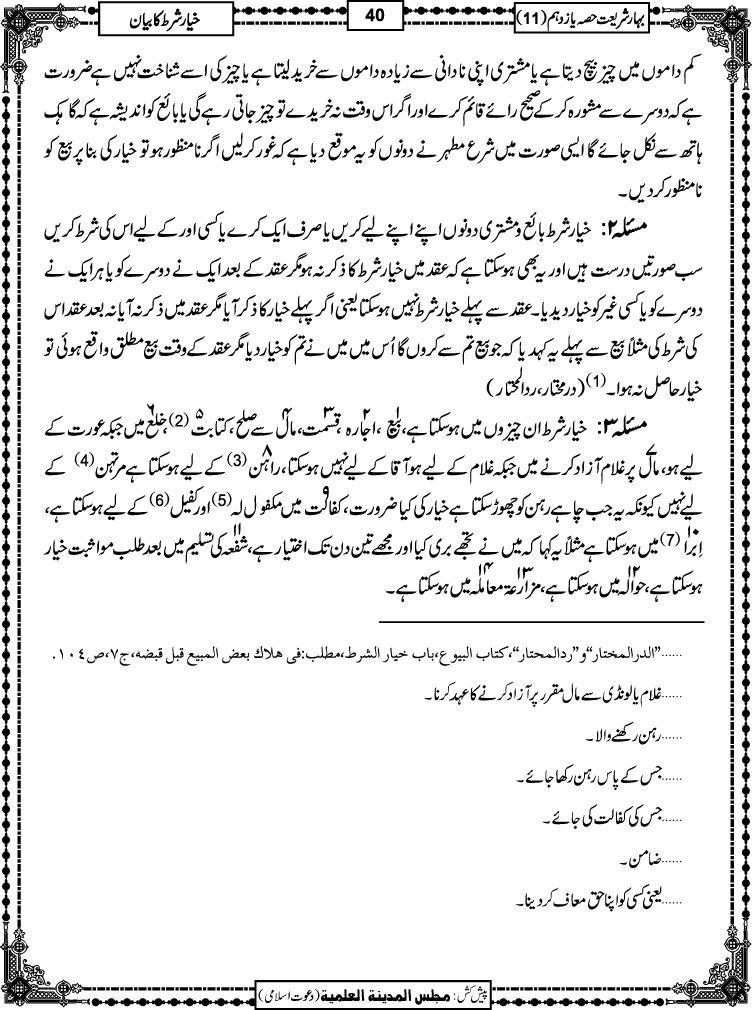 بہار شریعت حصہ یازدہم (11)
40
خیار شرط کا بیان
کم داموں میں چیز بیچ دیتا ہے یا مشتری اپنی نادانی سے زیادہ داموں سے خرید لیتا ہے یا چیز کی اسے شناخت نہیں ہے ضرورت
ہے کہ دوسرے سے مشورہ کر کے صحیح رائے قائم کرے اور اگر اس وقت نہ خریدے تو چیز جاتی رہے گی یا بائع کو اندیشہ ہے کہ گاہک
ہاتھ سے نکل جائے گا ایسی صورت میں شرع مطہر نے دونوں کو یہ موقع دیا ہے کہ غور کر لیں اگر نا منظور ہو تو خیار کی بنا پر بیع کو
نامنظور کر دیں۔
مسئلہ ۲: خیار شرط بائع و مشتری دونوں اپنے اپنے لیے کریں یا صرف ایک کرے یا کسی اور کے لیے اس کی شرط کریں
سب صورتیں درست ہیں اور یہ بھی ہو سکتا ہے کہ عقد میں خیار شرط کا ذکر نہ ہو مگر عقد کے بعد ایک نے دوسرے کو یا ہر ایک نے
دوسرے کو یا کسی غیر کو خیار دیدیا۔ عقد سے پہلے خیار شرط نہیں ہو سکتا یعنی اگر پہلے خیار کا ذکر آیا مگر عقد میں ذکر نہ آیا نہ بعد عقد اس
کی شرط کی مثلاً بیع سے پہلے یہ کہدیا کہ جو بیع تم سے کروں گا اُس میں میں نے تم کو خیار دیا مگر عقد کے وقت بیع مطلق واقع ہوئی تو
خیار حاصل نہ ہوا۔(1) (درمختار، ردالمحتار)
مسئلہ ۳: خیار شرط ان چیزوں میں ہو سکتا ہے، بیع۱، اجارہ۲، قسمت۳، مال سے صلح۴، کتابت۵(2)، خلع۶ میں جبکہ عورت کے
لیے ہو، مال۷ پر غلام آزاد کرنے میں جبکہ غلام کے لیے ہو آقا کے لیے نہیں ہو سکتا، راہن۸(3) کے لیے ہو سکتا ہے مرتہن(4) کے
لیے نہیں کیونکہ یہ جب چاہے رہن کو چھوڑ سکتا ہے خیار کی کیا ضرورت، کفالت۹ میں مکفول لہ(5) اور کفیل(6) کے لیے ہو سکتا ہے،
اِبرا۱۰(7) میں ہو سکتا ہے مثلاً یہ کہا کہ میں نے تجھے بری کیا اور مجھے تین دن تک اختیار ہے، شفعہ۱۱ کی تسلیم میں بعد طلب مواثبت خیار
ہو سکتا ہے، حوالہ۱۲ میں ہو سکتا ہے، مزارعۃ۱۳ معاملہ۱۴ میں ہو سکتا ہے۔
......"الدرالمختار" و "ردالمحتار"، کتاب البیوع، باب خیار الشرط، مطلب: فی ھلاك بعض المبیع قبل قبضہ، ج۷، ص۱۰٤.
......غلام یا لونڈی سے مال مقرر پر آزاد کرنے کا عہد کرنا۔
......رہن رکھنے والا۔
......جس کے پاس رہن رکھا جائے۔
......جس کی کفالت کی جائے۔
......ضامن۔
......یعنی کسی کو اپنا حق معاف کر دینا۔
پیش کش: مجلس المدینة العلمیة (دعوت اسلامی)